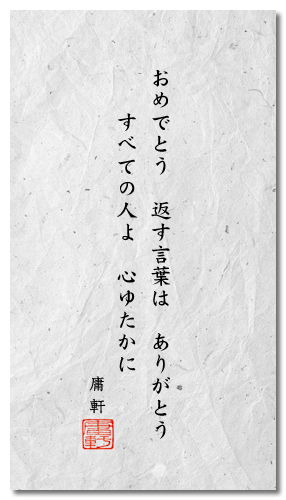 おめでとう　返す言葉は　ありがとう
すべての人よ　心ゆたかに
庸軒